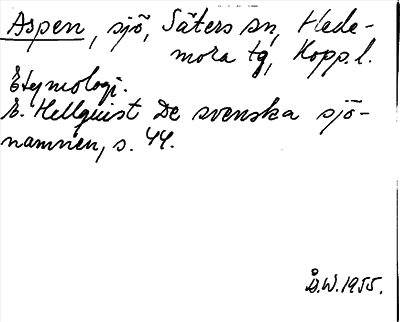 Aspen, sjö, Säters sn, Hede-
mora tg, Kopp.l.
Etymologi.
E. Hellquist De svenska sjö-
namnen, s. 44.
Å.W.1955.